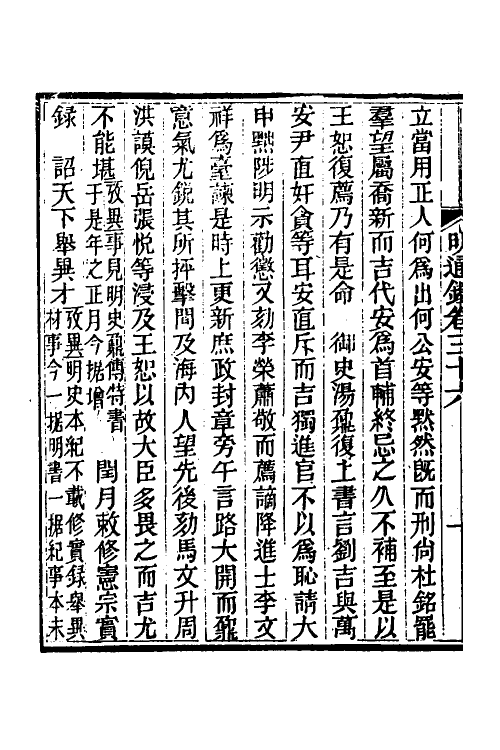 明通鑑卷三十六
一
立當用正人何爲出何公安等黙然旣而刑尙杜銘罷
羣望屬喬新而吉代安爲首輔終忌之久不補至是以
王恕復薦乃有是命　御史湯鼐復上書言劉吉與萬
安尹直奸貪等耳安直斥而吉獨進官不以爲恥請大
申黜陟明示勸懲又劾李榮蕭敬而薦謫降進士李文
祥爲臺諫是時上更新庶政封章旁午言路大開而鼐
意氣尤銳其所抨擊間及海內人望先後劾馬文升周
洪謨倪岳張悅等浸及王恕以故大臣多畏之而吉尤
不能堪攷異事見明史鼐傳特書于是年之正月今据增　閏月敕修憲宗實
録　詔天下舉異才攷異明史本紀不載修實録舉異材事今一据明書一据紀事本末